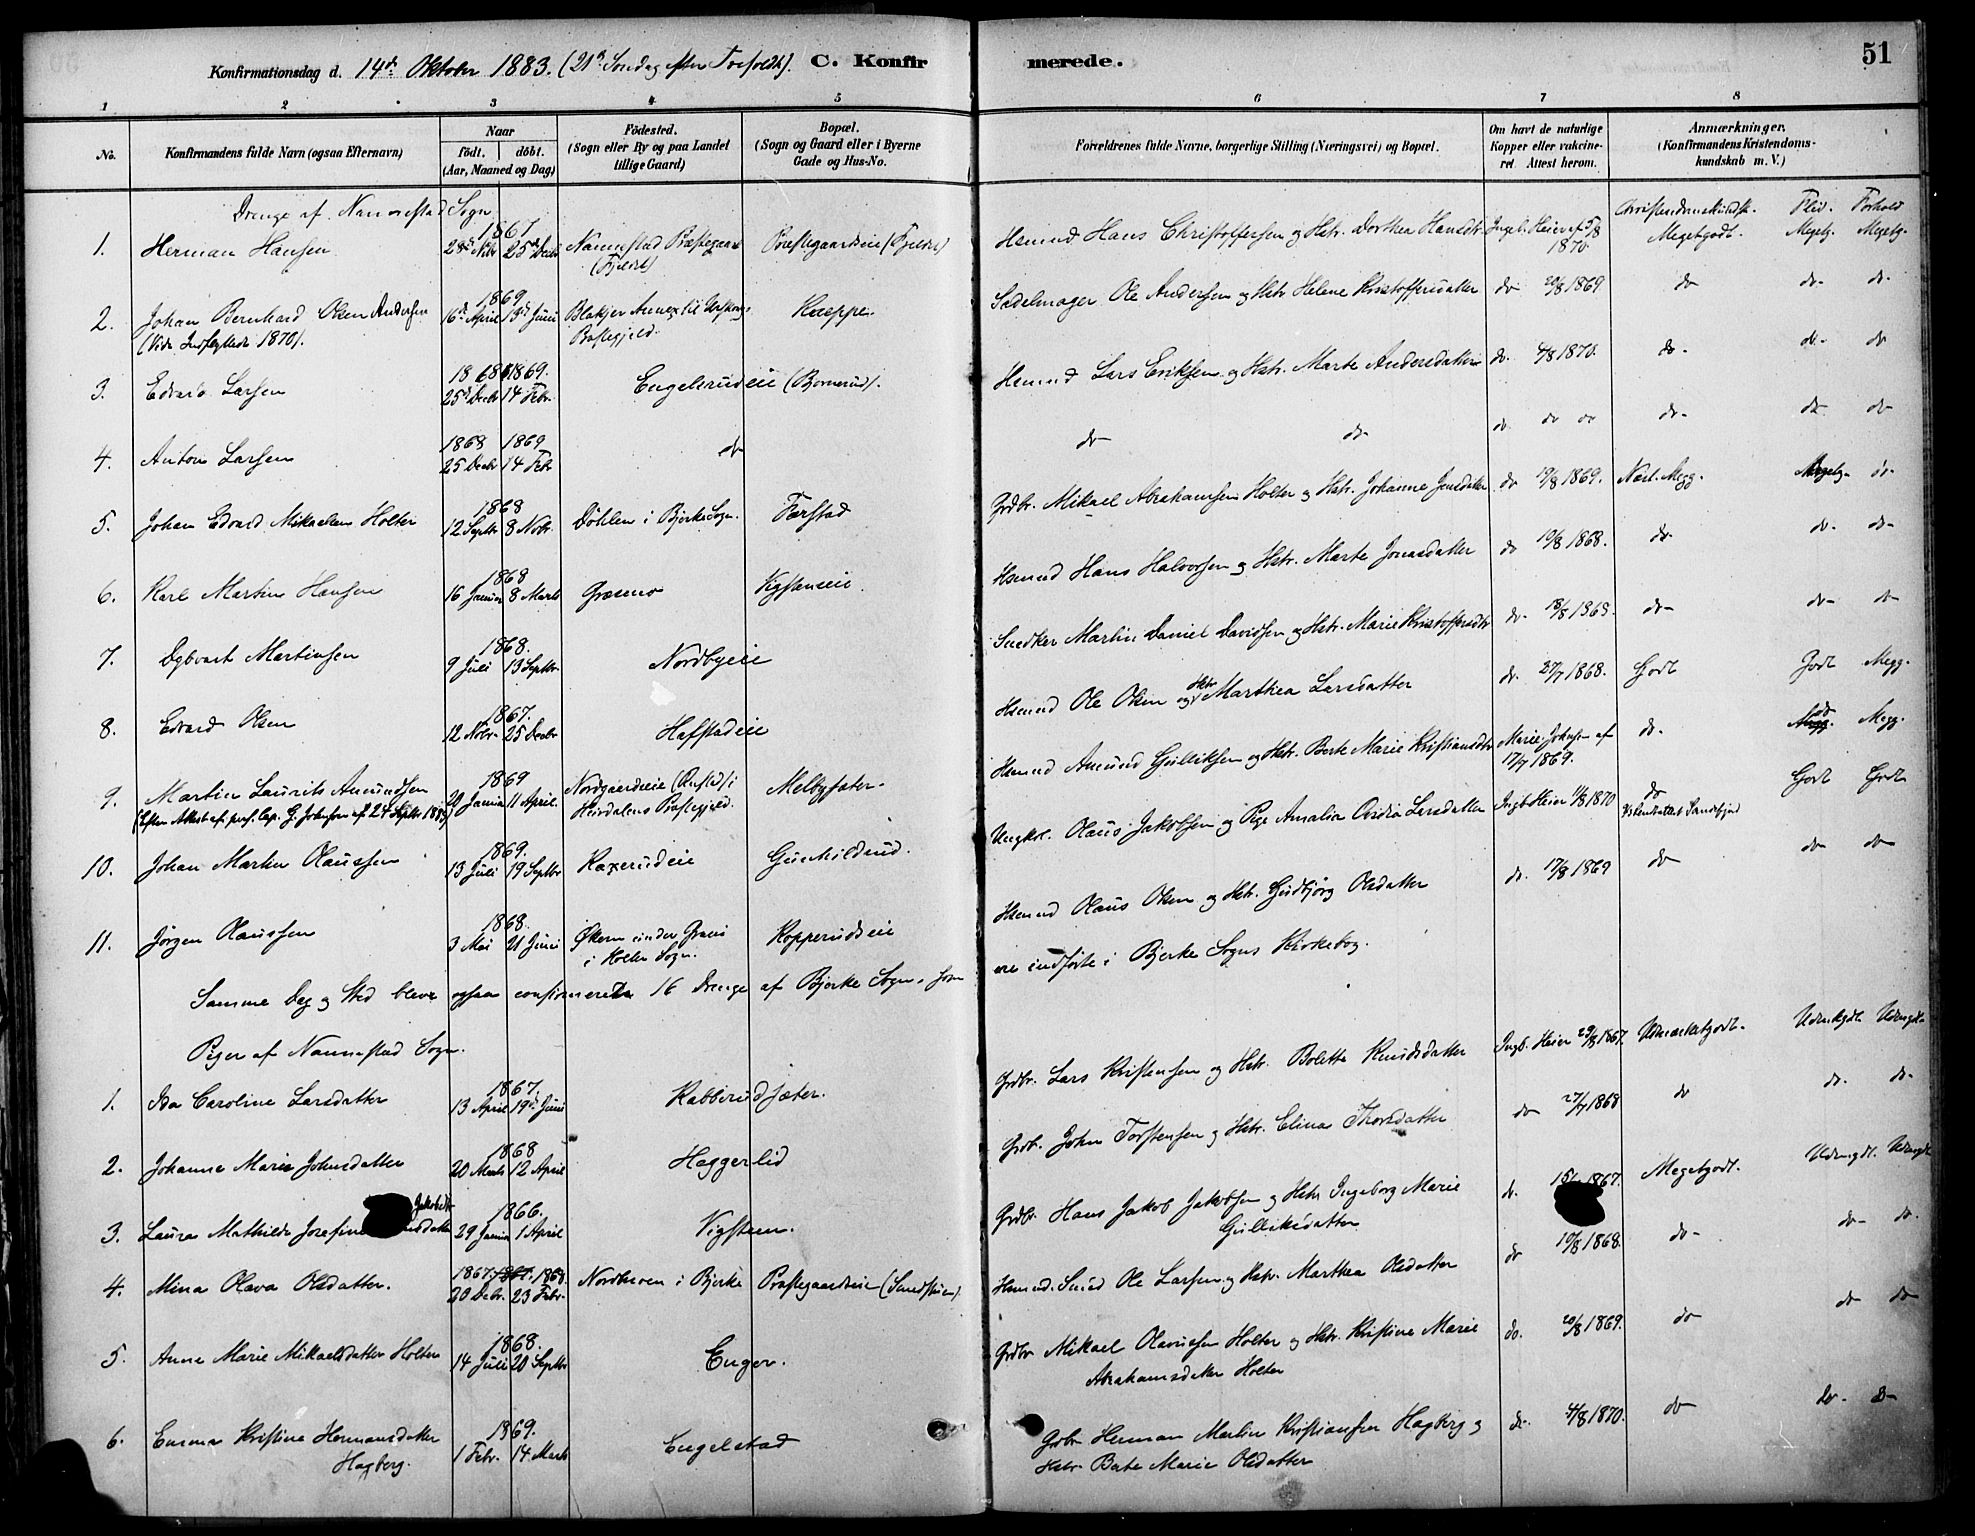 Konfirmationsdag d. 14de Oktober 1883. (21de Søndag efter Trefoldh). C. Konfirmerede. 51
1 2 3 4 5 6 7 8
No. Konfirmandens fulde Navn (ogsaa Efternavn) Naar født. døbt. (Aar, Maaned og Dag) Fødested. (Sogn eller By og paa Landet tillige Gaard) Bopæl. (Sogn og Gaard eller i Byerne Gade og Hus-No. Forældrenes fulde Navne, borgerlige Stilling (Næringsvei) og Bopæl. Om havt de naturlige Kopper eller vakcineret. Attest herom. Anmærkninger. (Konfirmandens Kristendomskundskab m. V.)
Drenge af Nannestad Sogn. Christendomskundsk. Flid. Forhold
1. Herman Hansen 1867 28de Nbr 25de Decbr Nannestad Præstegaard (Fjeldet) Præstegaardseie (Fjeldet) Hsmd Hans Christoffersen og Hstr. Dorthea Hansdtr. Ingeb. Heier af 5/8 1870. Megetgodt. Megetg. Megetg.
2. Johan Bernhard Olsen Andersen (Vide Indflyttede 1870). 1869 16de April 13de Juni Blakjer Annex til Urskougs Præstegjeld. Kneppe. Sadelmager Ole Andersen og Hstr Helene Kristoffersdatter do 20/8 1869. do do- do-
3. Edvard Larsen 1868 1869. 25de Decbr 14 Febr. Engelsrudeie (Bornerud). Hsmd Lars Eriksen og Hstr. Marte Andersdatter do. 4/8 1870. do- do- do
4. Anton Larsen 1868 1869 25 Decbr 14 Febr do do do- do. do do do- do do
5. Johan Edvard Mikaelsen Holter 1868 12 Septbr 8 Nobr. Døhlen i Bjerke Sogn. Farstad Grdbr. Mikael Abrahamsen Holter og Hstr. Johanne Jensdatter do 19/8 1869. Næst. Megg. Megetg- do-
6. Karl Martin Hansen 1868 16 Januar 8 Marts Græsmo Vigsteneie. Hsmd Hans Halvorsen og Hstr. Marte Jonasdatter do 10/8 1868. do- do- do-
7. Dybvart Martinsen 1868. 9 Juli 13 Septbr. Nordbyeie Snedker Martin Daniel Davidsen og Hstr. Marie Kristoffersdtr do- 18/8 1868. do- do- do-
8. Edvard Olsen 1867. 12 Nobr. 25 Decbr Hafstadeie Hsmd Ole Olsen og Hstr Marthea Larsdatter do. 27/7 1868. Godt Godt Megg.
9. Martin Laurits Amundsen (Efter Attest af pers. Cap. G. Johnson af 24 Septbr 1883) 1869 20 Januar 11 April. Nordgaardseie i Heirdalens Præstegjeld. Melbysæter. Hsmd Amund Gulliksen og Hstr. Berte Marie Kristiansdtr Marie Johnsn af 17/7 1869. do. do Megg.
10. Johan Martin Olaussen 1869. 13 Juli 19 Septbr Raxerudeie Gunhildrud. Ungkl. Olaus Jakobsen og Pige Amalia Ovidia Larsdatter Ingb Heier 11/8 1870 do Godt Godt
11. Jørgen Olaussen 1868. 3 Mai 21 Juni Økern under Græsi i Holter Sogn. Kopperudseie Hsmd Olaus Olsen og Hstr. Gudbjørg Olsdatter do. 17/8 1869 do do do
Samme Dag og Sted bleve ogsaa confirmerede 16 Drenge af Bjerke Sogn, som ere indførte i Bjerke Sogns Kirkebog.
Piger af Nannestad Sogn.
1. Ida Caroline Larsdatter 1867. 13 April 19de Juni Rabberudsæter. Grdbr. Lars Kristensen og Hstr. Bolette Knudsdatter Ingb. Heier 29/8 1867. Udmærketgodt. Udmkgdt. Udmgdt.
2. Johanne Marie Johnsdatter 1868 20 Marts 12 April Haggerlid Grdbr. John Torstensen og Hstr. Elina Thorsdatter do 27/7 1868 do do- do-
3. Laura Mathilde Josefine Jakobsdtr 1866. 29 Januar 1 April Vigstein. Grdbr. Hans Jakob Jakobsen og Hstr Ingeborg Marie Gulliksdatter do. 1867. Megetgodt. Udmgdt. Udmgdt
4. Mina Olava Olsdatter. 1867. 1868. 20 Decbr. 23 Febr. Nordmoen i Bjerke Præstegaardseie Hsmd. Smed Ole Larsen og Hstr. Marthea Olsdatter do 10/8 1868. do- do- do.
5. Anna Marie Mikaelsdatter Holter 1868. 14 Juli 20 Septbr Enger. Grdbr Mikael Olavusen Holter og Hstr. Kristine Marie Abrahamsdatter Holter do. 20/8 1869. do do do
6. Emma Kristine Hermansdatter Hagberg. 1869. 1 Febr. 14 Marts Engelstad Grdbr Herman Martin Kristiansen Hagberg og Hstr. Berte Marie Olsdatter do. 4/8 1870. do do- do-